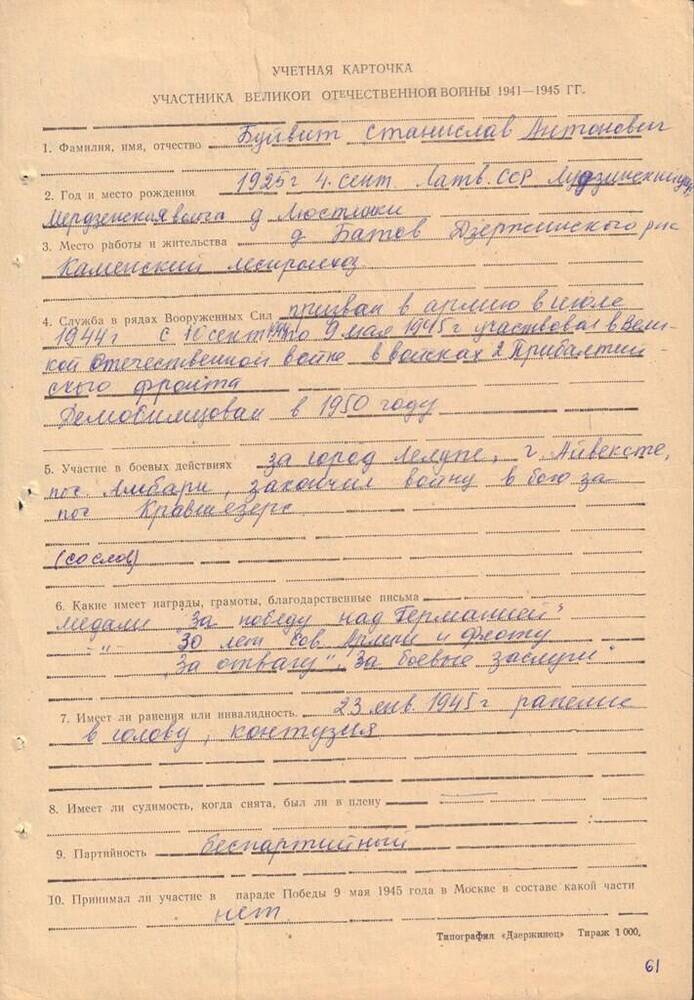 УЧЕТНАЯ КАРТОЧКА
УЧАСТНИКА ВЕЛИКОЙ ОТЕЧЕСТВЕННОЙ ВОЙНЫ 1941—1945 ГГ.
1. Фамилия, имя, отчество Буйвит Станислав Антонович
2. Год и место рождения 1925 г 4. сент. Латв. ССР Лудзинский
Мердзенская волость д
3. Место работы и жительства д Батов Дзержинского р на
Каменский леспромхоз
4. Служба в рядах Вооруженных Сил призван в армию в июле
1944 г с 10 сент 1944 по 9 мая 1945 г участвовал в Вели-
кой Отечественной войне в войсках 2 Прибалтий-
ского фронта
Демобилизован в 1950 году
5. Участие в боевых действиях за город Лелупе, г. Айвексте,
пос. закончил войну в бою за
пос
(со слов)
6. Какие имеет награды, грамоты, благодарственные письма
медали "За победу над Германией"
–"– 30 лет Сов. Армии и флоту
"За отвагу", "За боевые заслуги"
7. Имеет ли ранения или инвалидность. 23 янв. 1945 г ранение
в голову, контузия
8. Имеет ли судимость, когда снята, был ли в плену —
9. Партийность беспартийный
10. Принимал ли участие в параде Победы 9 мая 1945 года в Москве в составе какой части
нет
Типография «Дзержинец» Тираж 1 000.
61